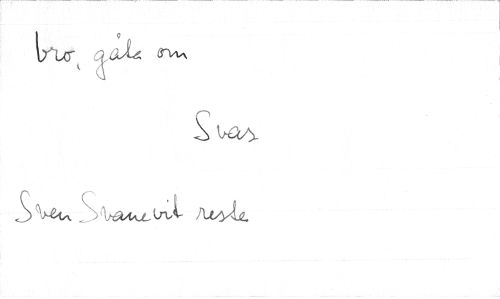 bro, gåta om
Svar
Sven Svanevit reste